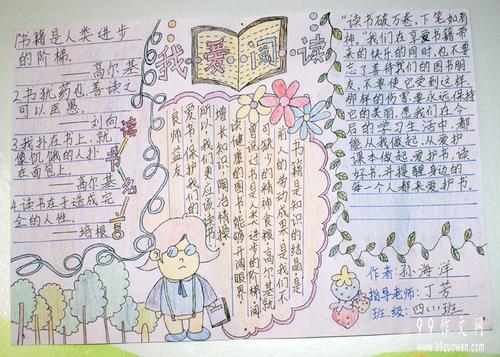 我爱阅读
1书籍是人类进步
的阶梯.
——高尔基
2.书犹药也,善读之
可以医愚.
——刘向
3.我扑在书上,就
像饥饿的人扑
在面包上.
——高尔基
4.读书在于造成完
全的人性.
——培根
读书名言
书籍是知识的结晶,是
前人的劳动成果,是我们不
可缺少的精神食粮,高尔基就
曾说过:书是人类进步的阶梯,阅
读健康的图书,能够开阔眼界
增长知识,陶冶情操。
所以我们更应该读书
爱书,保护我们的
良师益友
“读书破万卷,下笔如有
神。”我们在享受书籍带
来的快乐的同时,也不要
忘了善待我们的图书朋
友,不要使它受到这样,
那样的伤害,要永远保持
它的美丽,愿我们在今
后的学习生活中,都
能从我做起,从爱护
课本做起,爱护书,读
好书,并提醒身边的
每一个人都来爱护书.
作者:孙海洋
指导老师:丁芳
班级:四(1)班
99作文网
www.99zuowen.com